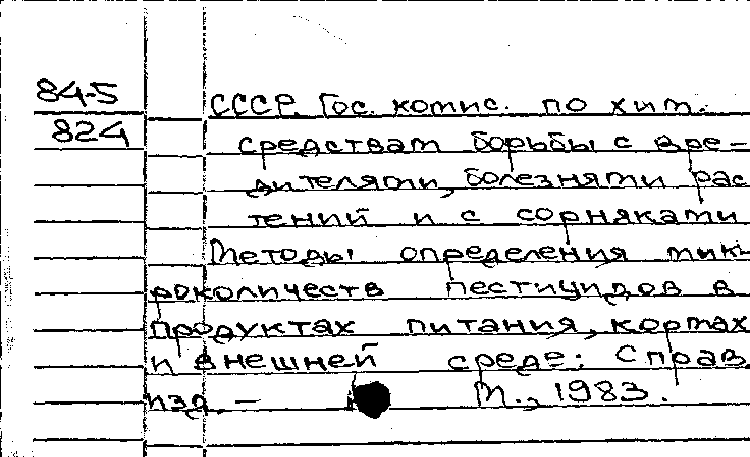 84-5
824
СССР. Гос. комис. по хим.
средствам борьбы с вре-
дителями, болезнями рас
тений и с сорняками
Методы определения мик
роколичеств пестицидов в
продуктах питания, кормах
и внешней среде: Справ.
изд. - М., 1983.